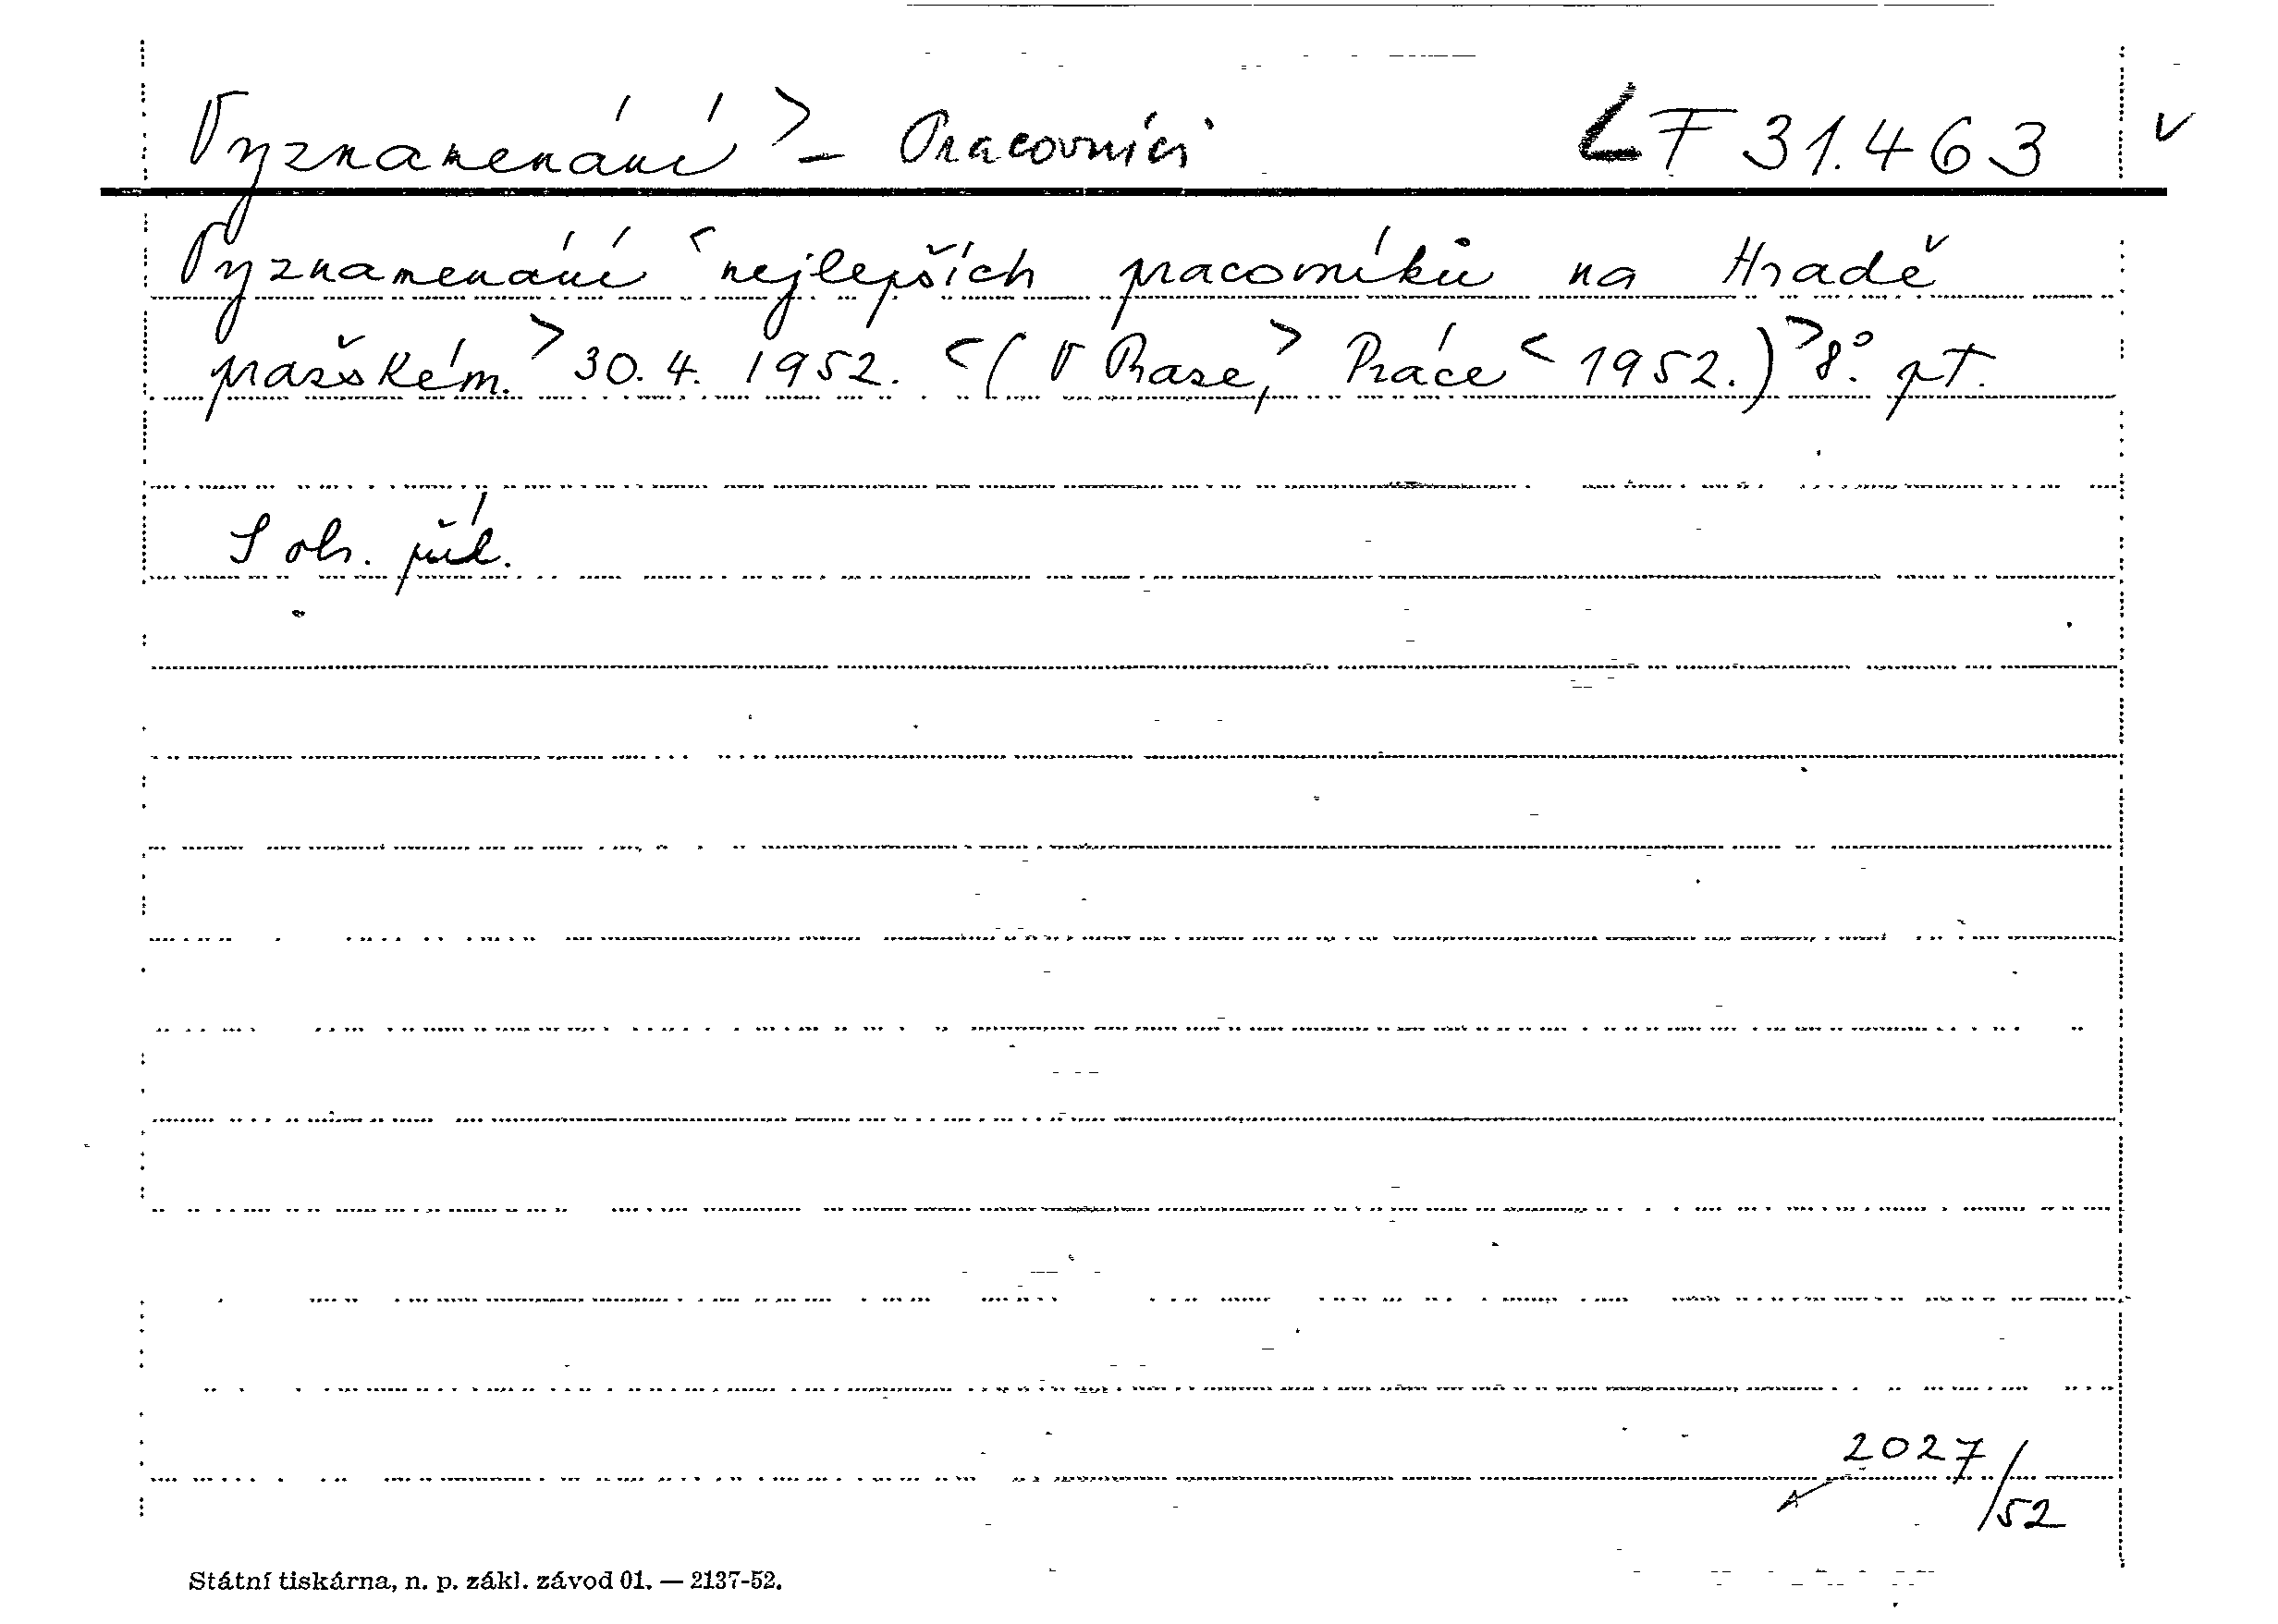 Vyznamenání > - Pracovníci LF 31.463 v
Vyznamenání < nejlepších pracovníků na Hradě
pražském. > 30. 4. 1952. < (V Praze, > Práce < 1952.) > 8° pt.
S obr. příl.
2027/52
Státní tiskárna, n. p. zákl. závod 01. — 2137-52.